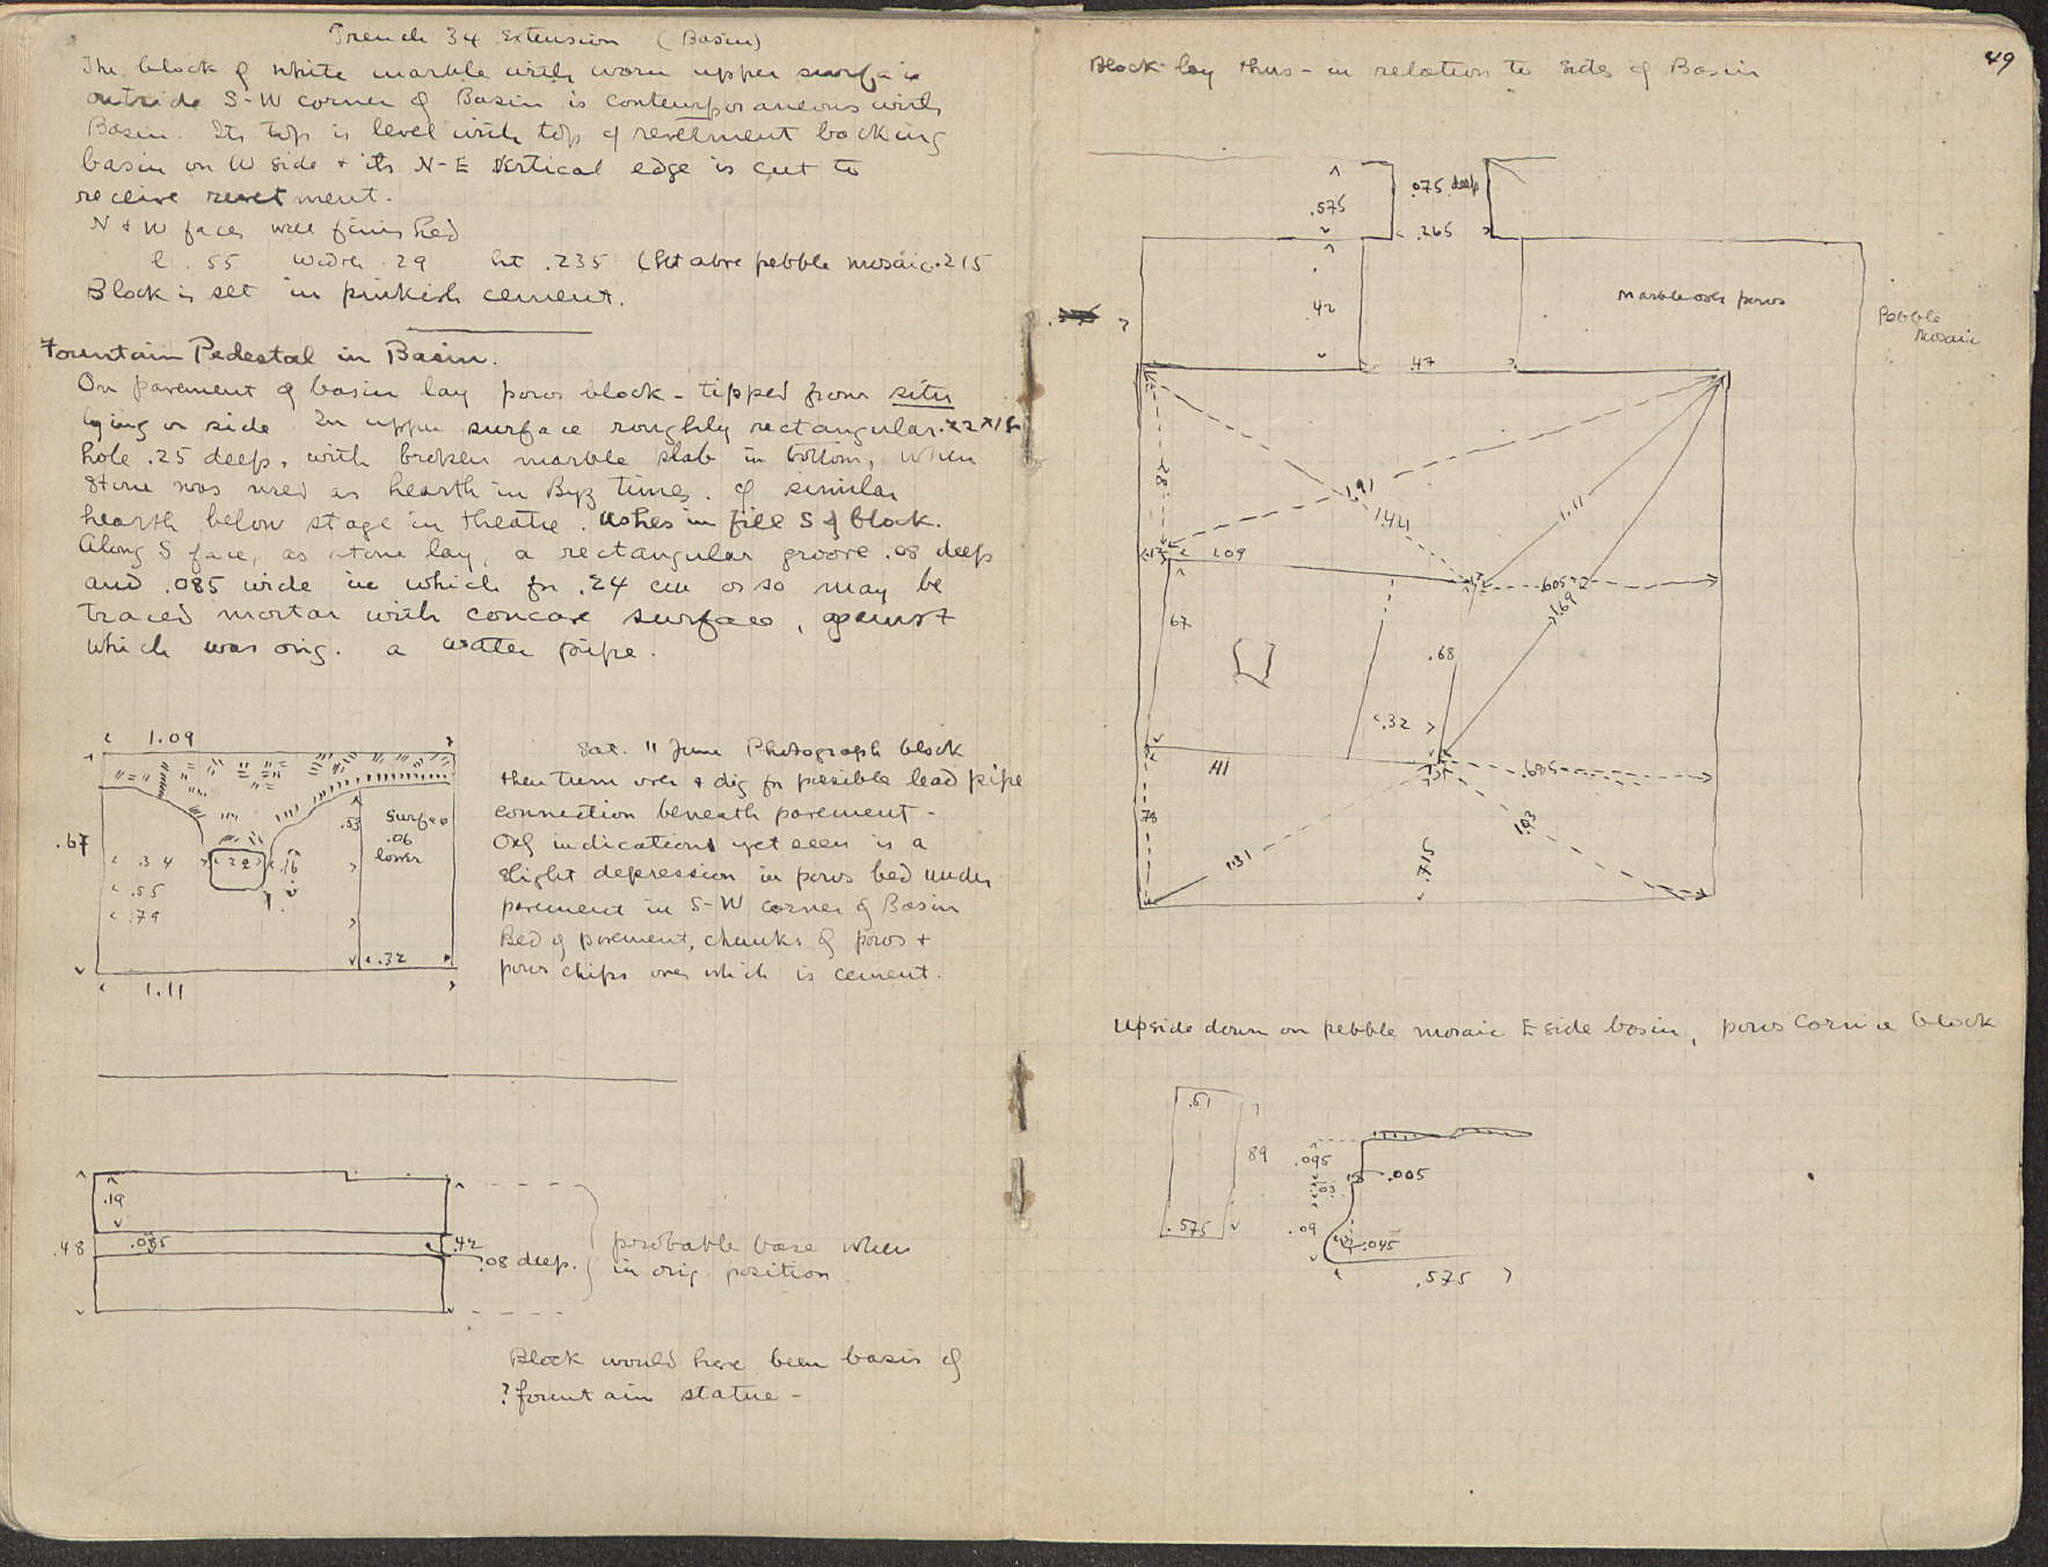 Trench 34 Extension (Basin)
The block of white marble with worn upper surface
outside S-W corner of Basin is contemporaneous with
Basin. Its top is level with top of revetment backing
basin on W side + its N-E vertical edge is cut to
receive revetment.
N + W faces well finished
l. .55 width .29 ht .235 (ht above pebble mosaic .215
Block is set in pinkish cement.
Fountain Pedestal in Basin.
On pavement of basin lay poros block - tipped from situ
lying on side In upper surface roughly rectangular
hole .25 deep, with broken marble slab in bottom, when
stone was used as hearth in Byz times. cf similar
hearth below stage in theatre. Ashes in fill S of block.
Along S face, as stone lay, a rectangular groove .08 deep
and .085 wide in which for .24 cm or so may be
traced mortar with concave surface, against
which was orig. a water pipe.
1.09
.67
.53
surface
.06
lower
.34
.22
.16
.55
.79
.32
1.11
Sat. 11 June Photograph block
then turn over + dig for possible lead pipe
connection beneath pavement -
Only indication yet seen is a
slight depression in poros bed under
pavement in S-W corner of Basin
Bed of pavement, chunks of poros +
poros chips over which is cement.
.19
.48
.085
.42
.08 deep.
probable base when
in orig. position
Block would have been basis of
? fountain statue -
49
Block lay thus - in relation to sides of Basin
.575
.075 deep
.265
.42
Marble over poros
Pebble
Mosaic
.47
.78
1.91
1.421
1.11
1.09
.605
1.69
67
.68
.32
.685
.78
1.31
1.03
.715
Upside down on pebble mosaic E side basin, poros cornice block
.51
89
.575
.095
.005
.03
.09
.045
.575